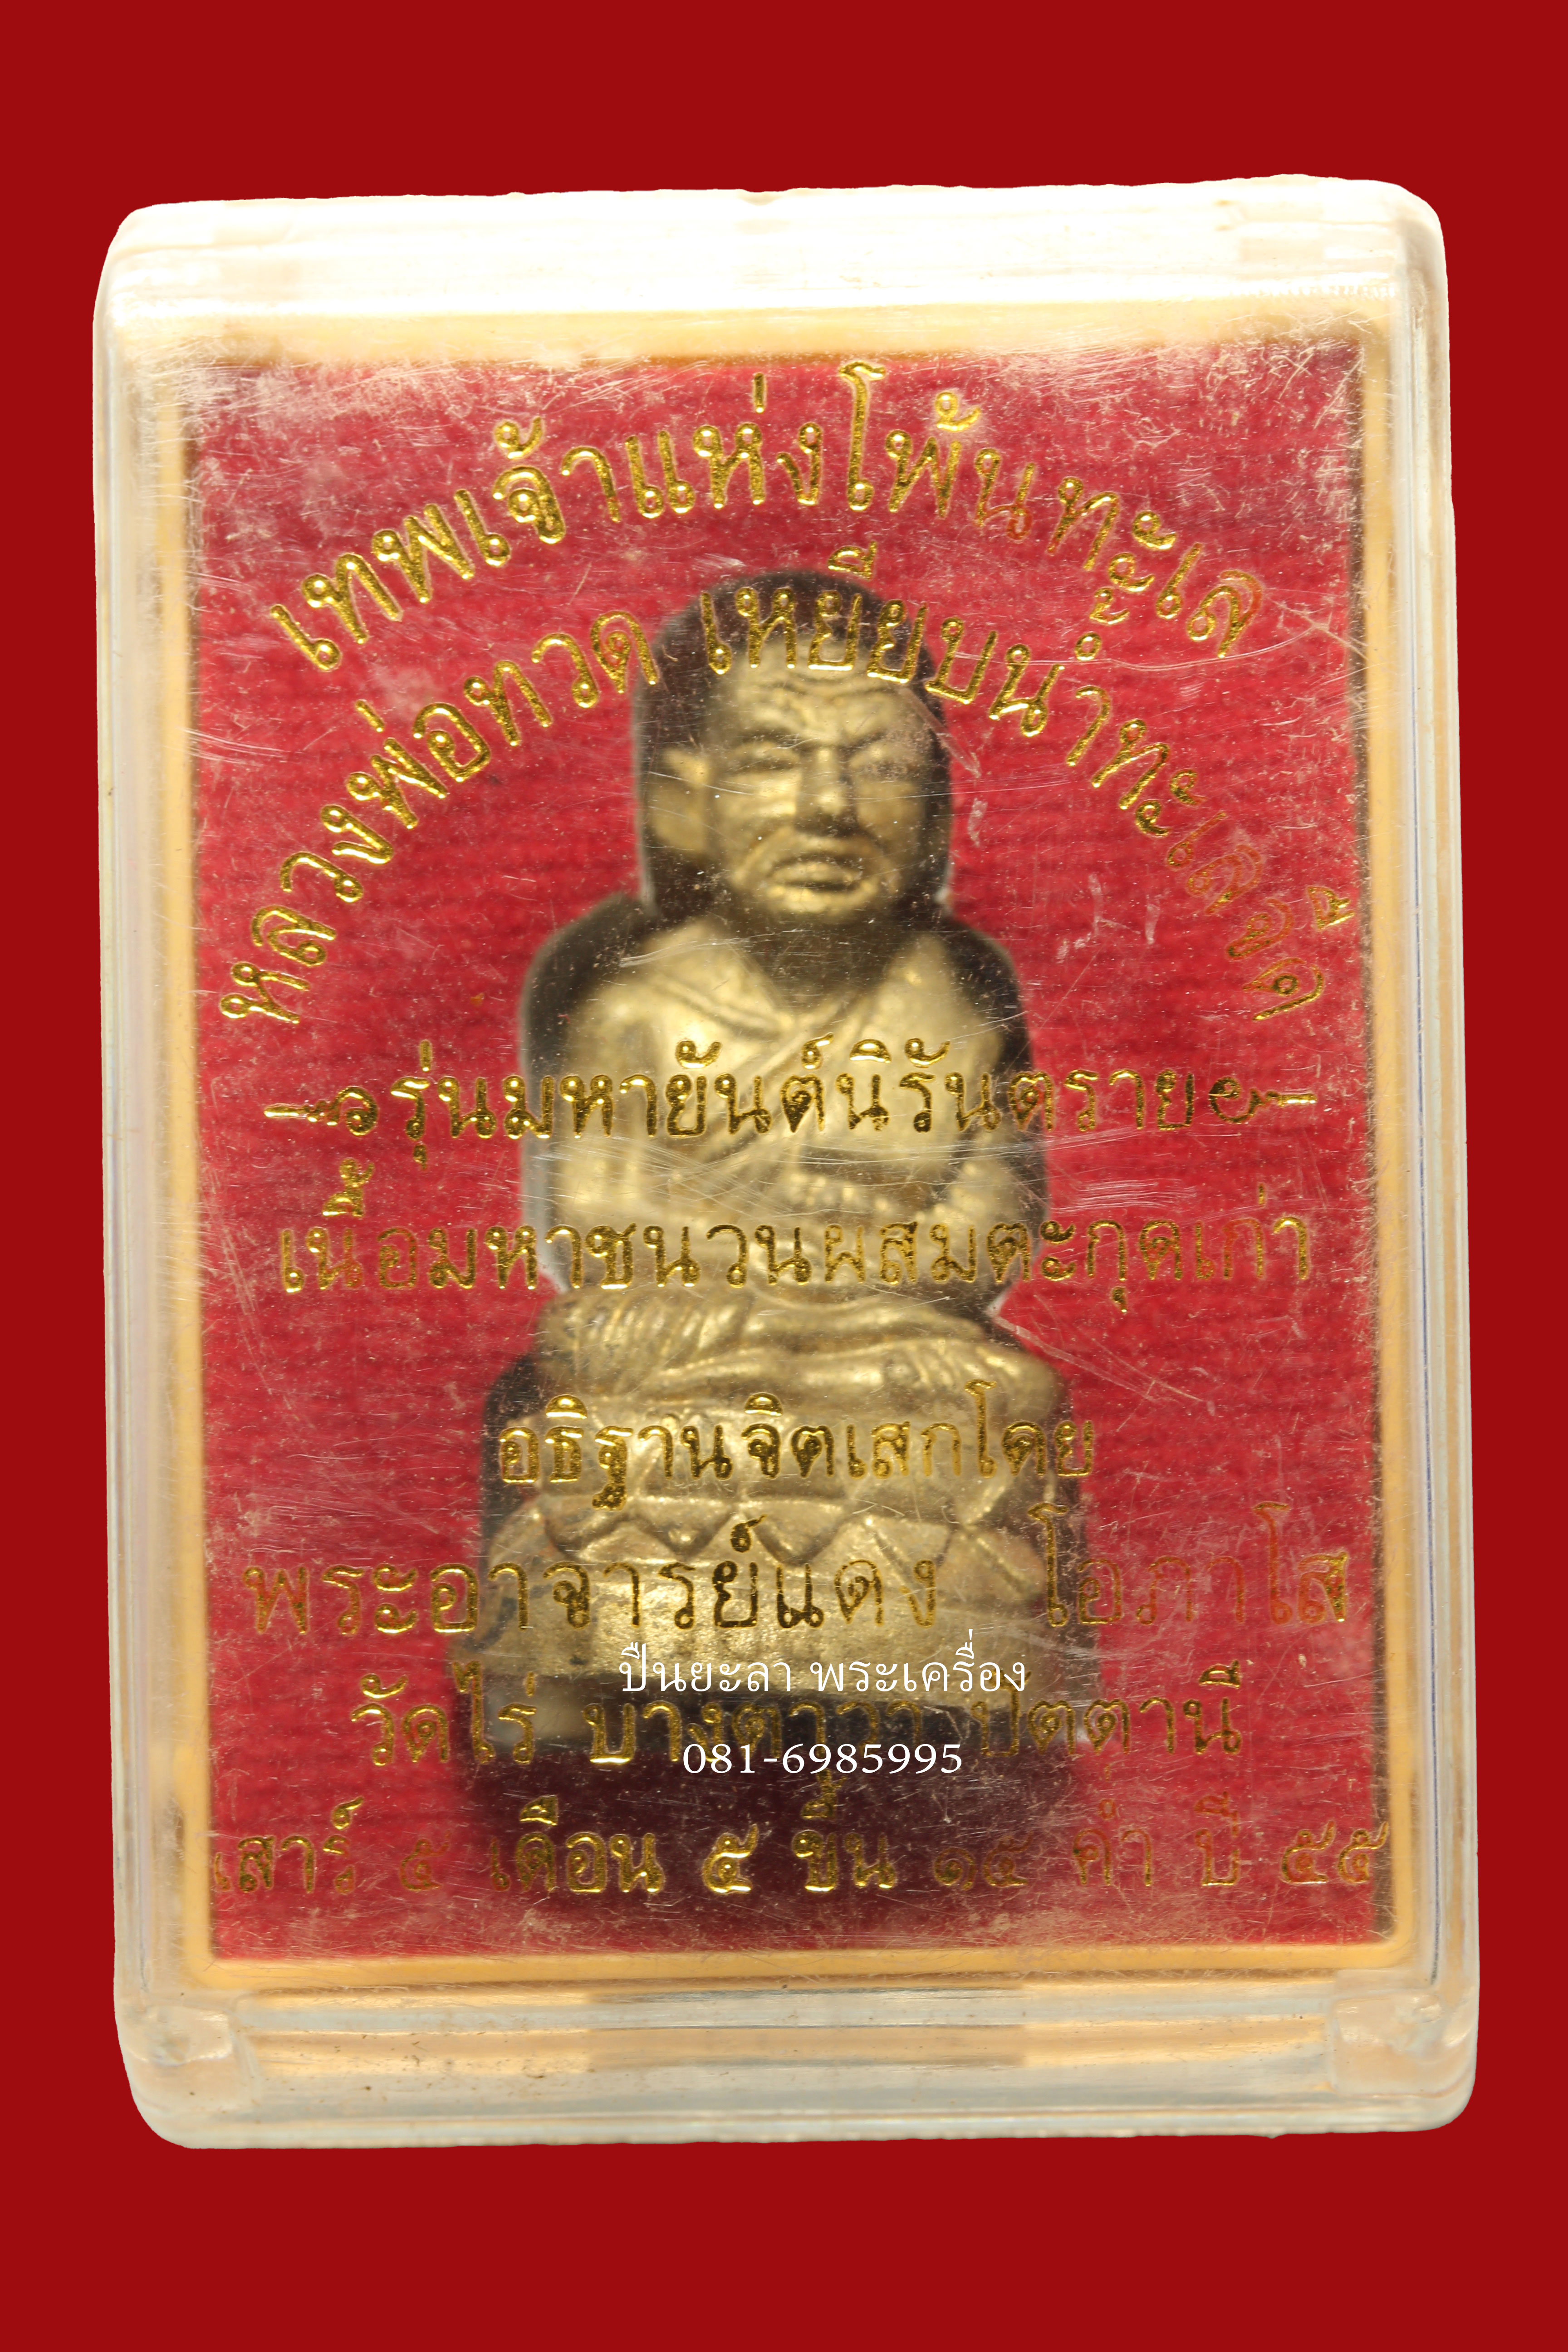 เทพเจ้าแห่งโพ้นทะเล
หลวงพ่อทวด เหยียบน้ำทะเลจืด
รุ่นมหายันต์นิรันตราย
เนื้อมหาชนวนผสมตะกุดเก่า
อธิฐานจิตเสกโดย
พระอาจารย์แดง โอภาโส
ปืนยะลา พระเครื่อง
วัดไร่ บางตาวา ปัตตานี
081-6985995
เสาร์ ๕ เดือน ๕ ขึ้น ๑๕ ค่ำ ปี ๕๕